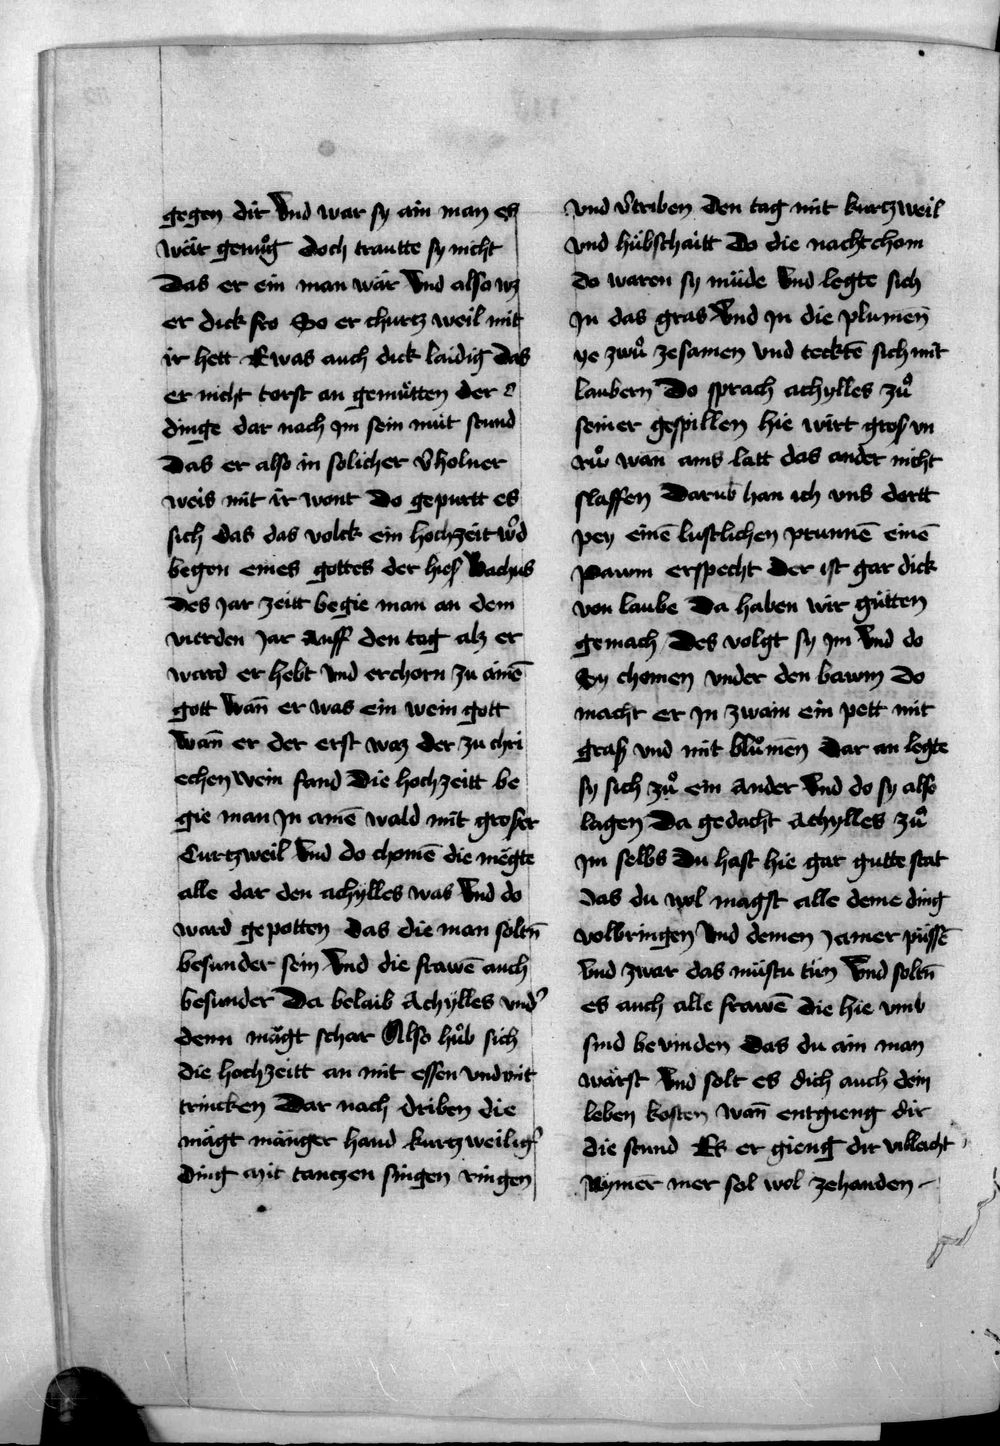 gegen dir Vnd war sy ain man es
wär genůg doch trautte sy nicht
Das er ein man wär Vnd also wz
er dick fro So er churtz weil mit
ir hett Er was auch dick laidig das
er nicht torst an gemütten der
dinge dar nach jm sein müt stund
Das er also in solicher v̄holner
weis mit ir wont Do gepurtt es
sich das das volck ein hochzeit wo᷑d
begen eines gottes der hies Bachus
Des jar zeitt begie man an dem
vierden jar Auff den tag alz er
ward er hebt Vnd erchorn zu ainē
gott Wan̄ er was ein wein gott
Wan̄ er der erst waz der zu chri
echen wein fand Die hochzeitt be
gie man jn ainē wald mit groser
Curtzweil Vnd do chomē die mëgte
alle dar den achÿlles was Vnd do
ward gepotten Das die man soltn̄
besunder sein Vnd die frawē auch
besunder Da belaib Achÿlles vnd᷑
denn mägt schar Also hůb sich
die hochzeitt an mit essen vnd mit
trincken Dar nach triben die
mägt mänger hand kurtzweilig᷑
ding Mit tantzen singen ringen
vnd v̄triben den tag mit kurtzweil
vnd hübschaitt Do die nacht chom
do waren sy müde Vnd legte sich
Jn das gras Vnd jn die plumen̄
ye zwů zesamen vnd tecktē sich mit
laubern Do sprach achylles zů
seiner gespillen hie wirt gros vn
rů wan ains latt das ander nicht
slaffen Darub̄ han ich vns dortt
pey einē lustlichen prunnē einē
pawm erspecht Der ist gar dick
von laube Da haben wir gütten
gemach Des volgt sy jm Vnd do
Sy chomen vnder den bawm Do
macht er jn zwain ein pett mit
gras vnd mit blůmēn Dar an legte
sy sich zů ein Ander Vnd do sy also
lagen Da gedacht Achylles zů
jm selbs Du hast hie gar gutte stat
das du wol magst alle deine ding
volbringen Vnd deinen jamer püssē
Vnd zwar das müstu tün Vnd soltn̄
es auch alle frawē die hie vmb
sind bevinden Das du ain man
wärst Vnd solt es dich auch dein
leben kosten Wan̄ entgieng dir
die stund Es er gieng dir villeicht
Nymēr mer sol wol zehanden